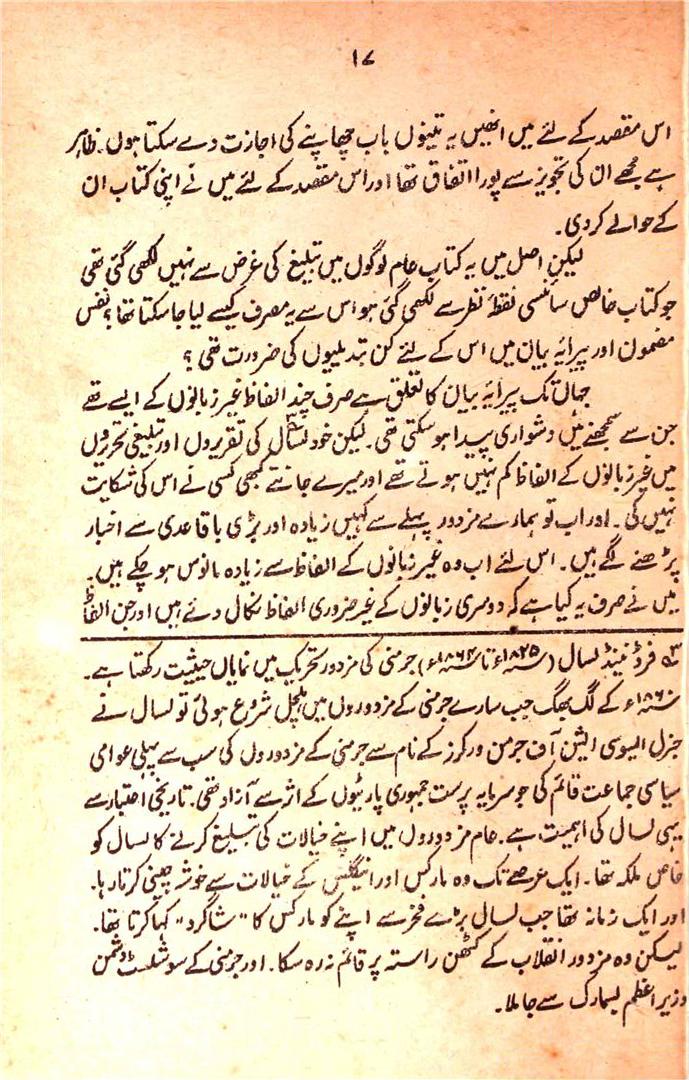 ۱۷
اس مقصد کے لئے میں انھیں یہ تینوں باب چھاپنے کی اجازت دے سکتا ہوں۔ ظاہر
ہے مجھے ان کی تجویز سے پورا اتفاق تھا اور اس مقصد کے لئے میں نے اپنی کتاب ان
کے حوالے کر دی۔
لیکن اصل میں یہ کتاب عام لوگوں میں تبلیغ کی غرض سے نہیں لکھی گئی تھی
جو کتاب خالص سائنسی نقطۂ نظر سے لکھی گئی ہو اس سے یہ مصرف کیسے لیا جا سکتا تھا؟ نفس
مضمون اور پیرایۂ بیان میں اس کے لئے کن تبدیلیوں کی ضرورت تھی؟
جہاں تک پیرایۂ بیان کا تعلق ہے صرف چند الفاظ غیر زبانوں کے ایسے تھے
جن سے سمجھنے میں دشواری پیدا ہو سکتی تھی۔ لیکن خود لسال۳ کی تقریروں اور تبلیغی تحریروں
میں غیر زبانوں کے الفاظ کم نہیں ہوتے تھے اور میرے جانتے کبھی کسی نے اس کی شکایت
نہیں کی۔ اور اب تو ہمارے مزدور پہلے سے کہیں زیادہ اور بڑی باقاعدی سے اخبار
پڑھنے لگے ہیں۔ اس لئے اب وہ غیر زبانوں کے الفاظ سے زیادہ مانوس ہو چکے ہیں۔
میں نے صرف یہ کیا ہے کہ دوسری زبانوں کے غیر ضروری الفاظ نکال دئے ہیں اور جن الفاظ
۳؂ فرڈنینڈ لسال (۱۸۲۵ء تا ۱۸۶۴ء) جرمنی کی مزدور تحریک میں نمایاں حیثیت رکھتا ہے۔
۱۸۶۰ء کے لگ بھگ جب سارے جرمنی کے مزدوروں میں ہلچل شروع ہوئی تو لسال نے
جنرل ایسوسی ایشن آف جرمن ورکرز کے نام سے جرمنی کے مزدوروں کی سب سے پہلی عوامی
سیاسی جماعت قائم کی جو سرمایہ پرست جمہوری پارٹیوں کے اثر سے آزاد تھی۔ تاریخی اعتبار سے
یہی لسال کی اہمیت ہے۔ عام مزدوروں میں اپنے خیالات کی تبلیغ کرنے کا لسال کو
خاص ملکہ تھا۔ ایک عرصے تک وہ مارکس اور اینگلس کے خیالات سے خوشہ چینی کرتا رہا۔
اور ایک زمانہ تھا جب لسال بڑے فخر سے اپنے کو مارکس کا "شاگرد" کہا کرتا تھا۔
لیکن وہ مزدور انقلاب کے کٹھن راستہ پر قائم نہ رہ سکا۔ اور جرمنی کے سوشلسٹ دشمن
وزیر اعظم بسمارک سے جا ملا۔